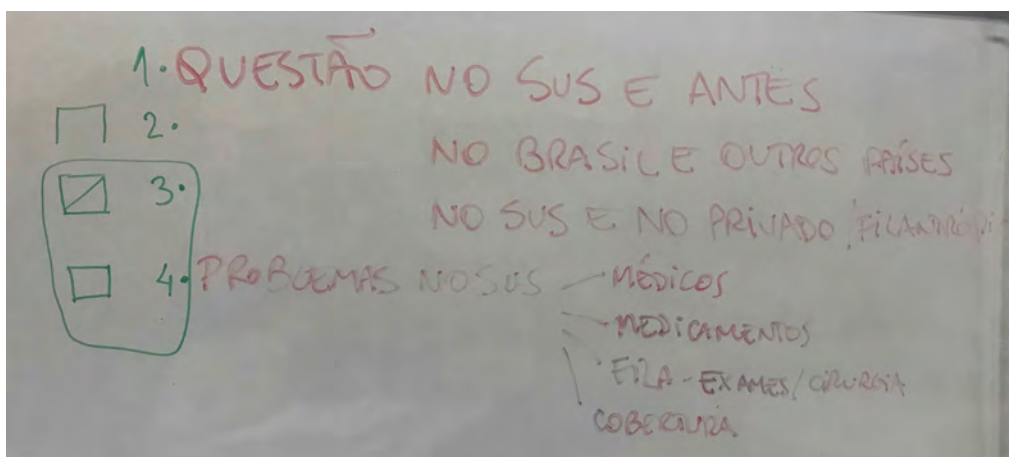 1. QUESTÃO NO SUS E ANTES
2.
NO BRASIL E OUTROS PAÍSES
3.
NO SUS E NO PRIVADO,
4. PROBLEMAS NO SUS - MÉDICOS
- MEDICAMENTOS
FILA - EXAMES/CIRURGIA
COBERTURA